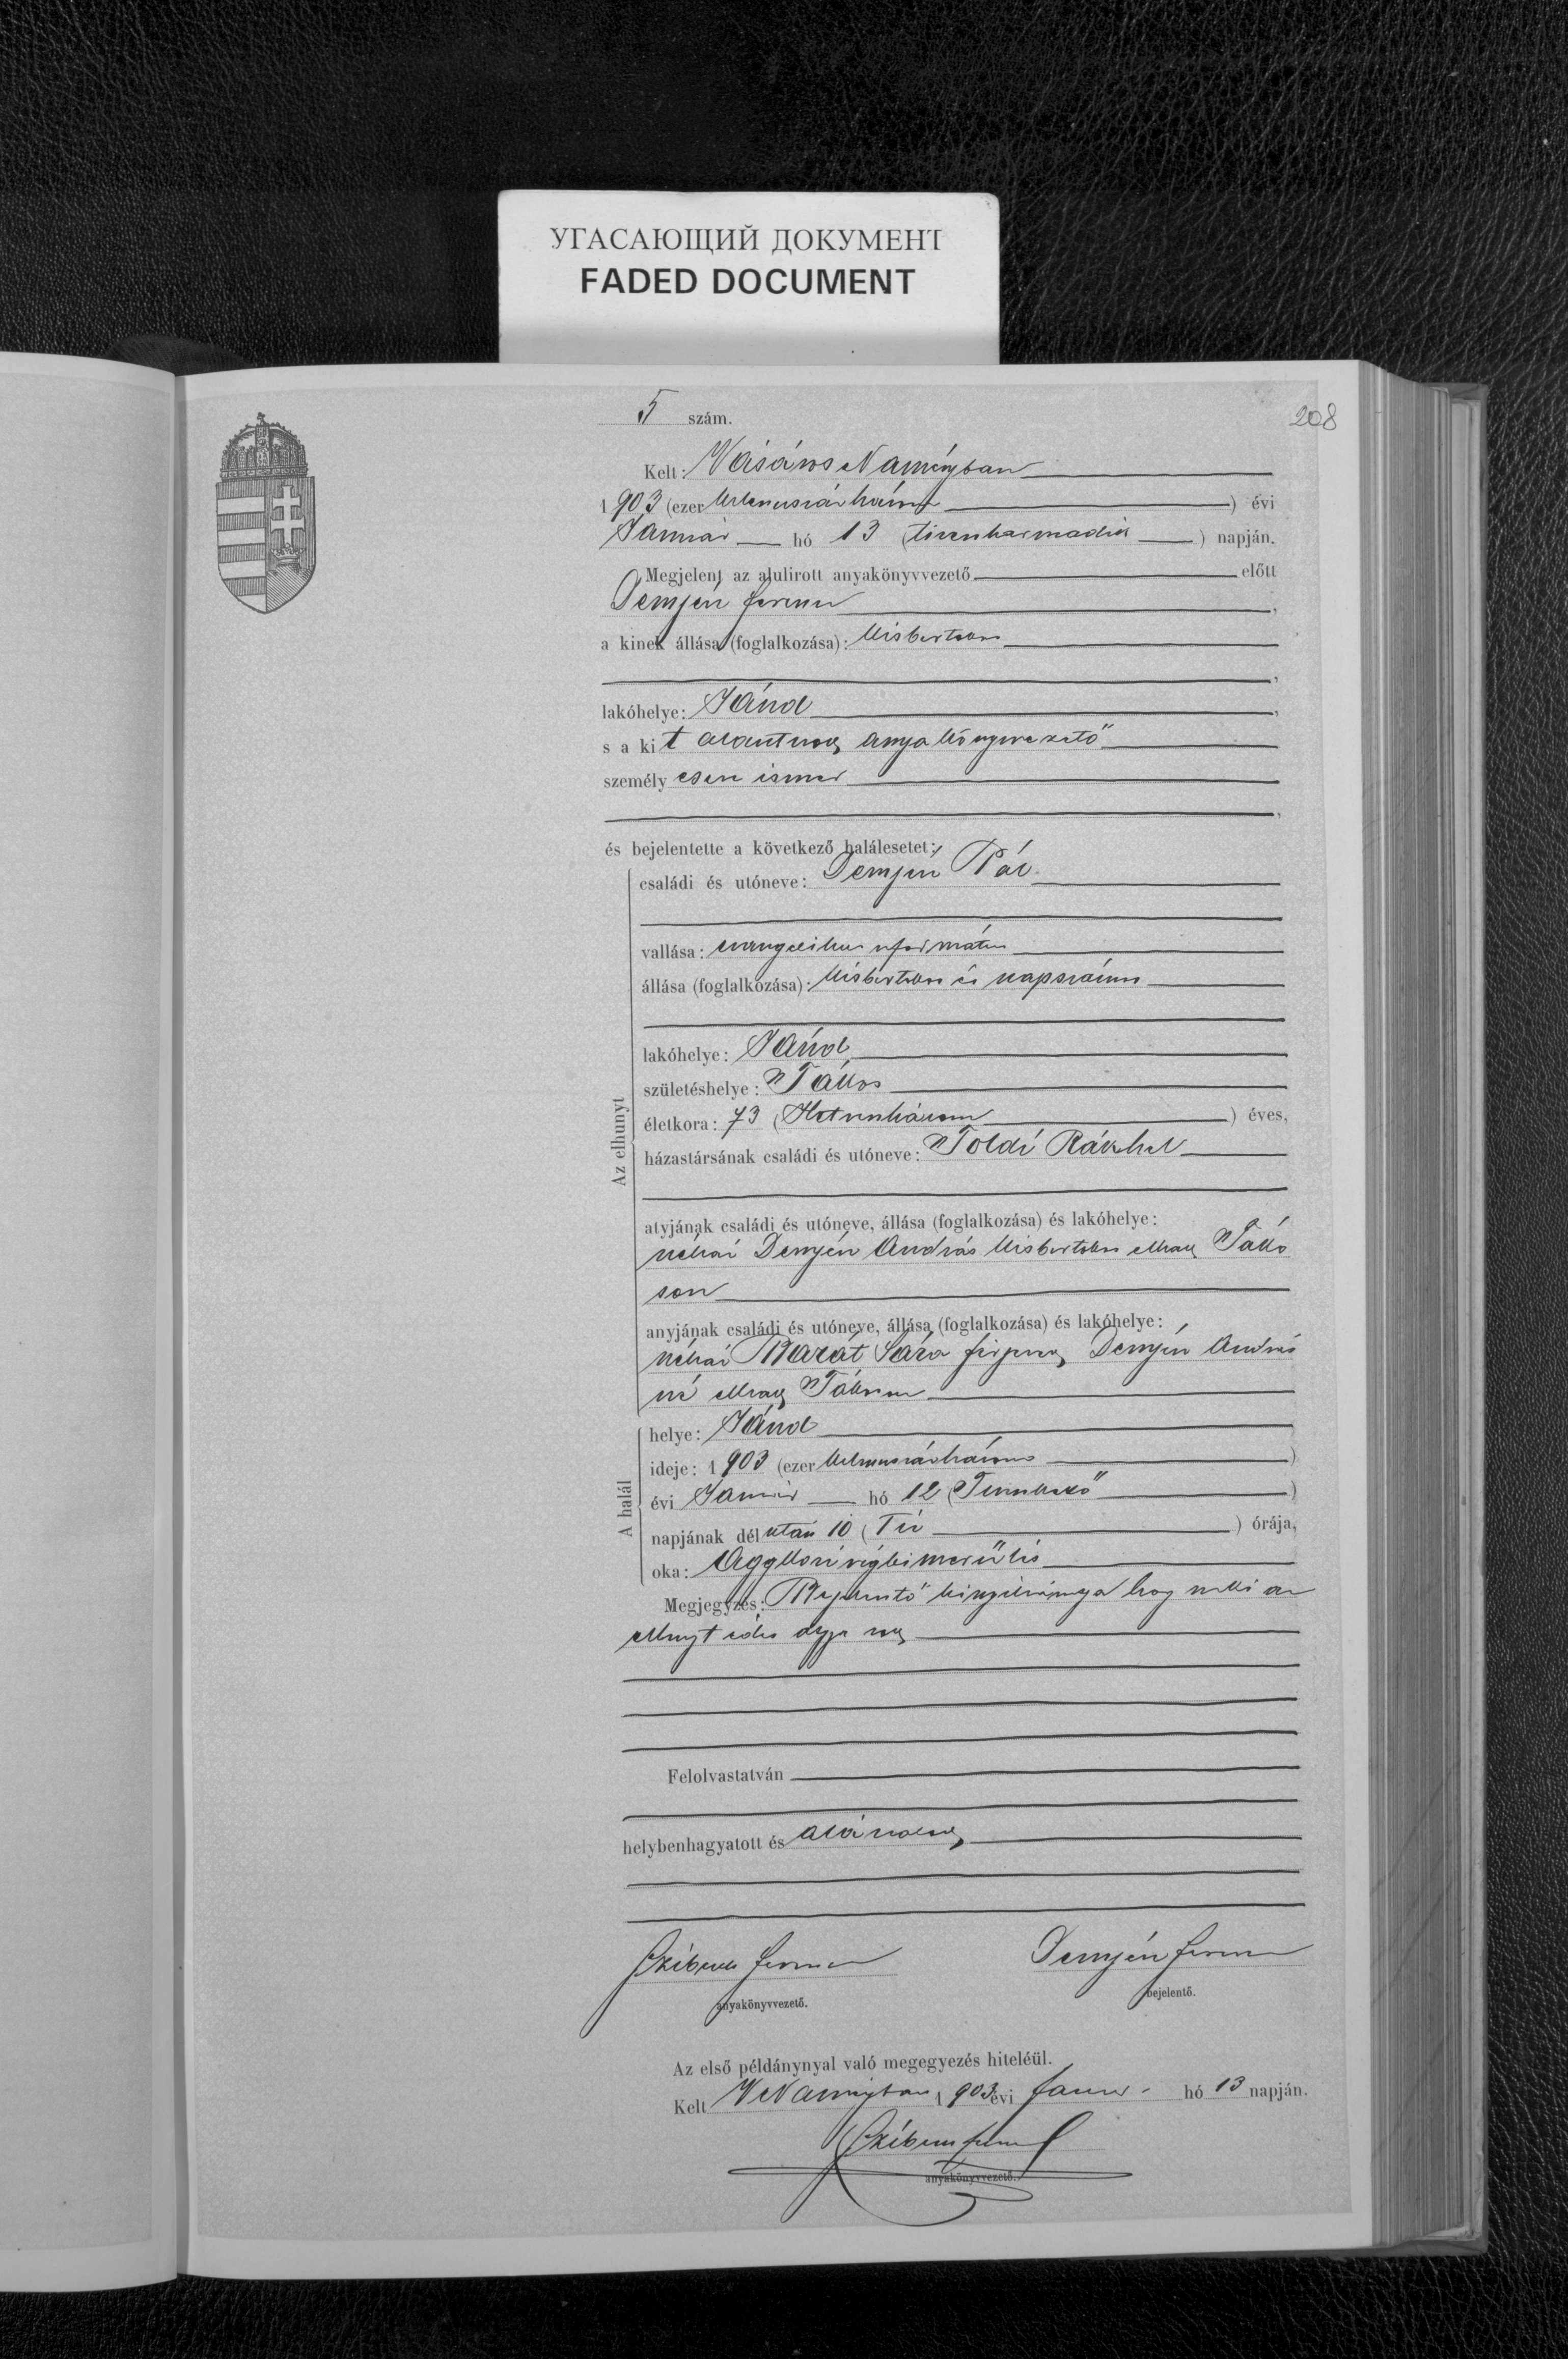 УГАСАЮЩИЙ ДОКУМЕНТ
FADED DOCUMENT
208
5 szám.
Kelt: Vásáros Naményban
1903 (ezer kilencszázhárom) évi
Január hó 13 (tizenharmadik) napján.
Megjelent az alulirott anyakönyvvezető előtt
Demjén Ferencz,
a kinek állása (foglalkozása): kisbirtokos
,
lakóhelye: Jánd,
s a kit alantirott anyakönyvvezető
személyesen ismer
,
és bejelentette a következő halálesetet:
Az elhunyt
családi és utóneve: Demjén Pál
vallása: evangelikus református
állása (foglalkozása): kisbirtokos és napszámos
lakóhelye: Jánd
születéshelye: Tákos
életkora: 73 (Hetvenhárom) éves,
házastársának családi és utóneve: Toldi Rákhel
atyjának családi és utóneve, állása (foglalkozása) és lakóhelye:
néhai Demjén András kisbirtokos elhalt Táko
son
anyjának családi és utóneve, állása (foglalkozása) és lakóhelye:
néhai Barát Sára férjezett Demjén András
né elhalt Tákoson
A halál
helye: Jánd
ideje: 1903 (ezer kilencszázhárom)
évi Január hó 12 (Tizenkettő)
napjának délután 10 (Tíz) órája,
oka: Aggkori végkimerülés
Megjegyzés: Bejelentő kinyilvánitja hogy neki az
elhunyt édes atyja volt
Felolvastatván
helybenhagyatott és aláiratott
Ferencz Demjén Ferencz
anyakönyvvezető. bejelentő.
Az első példánynyal való megegyezés hiteléül.
Kelt VNaményban 1903 évi Január hó 13 napján.
anyakönyvvezető.